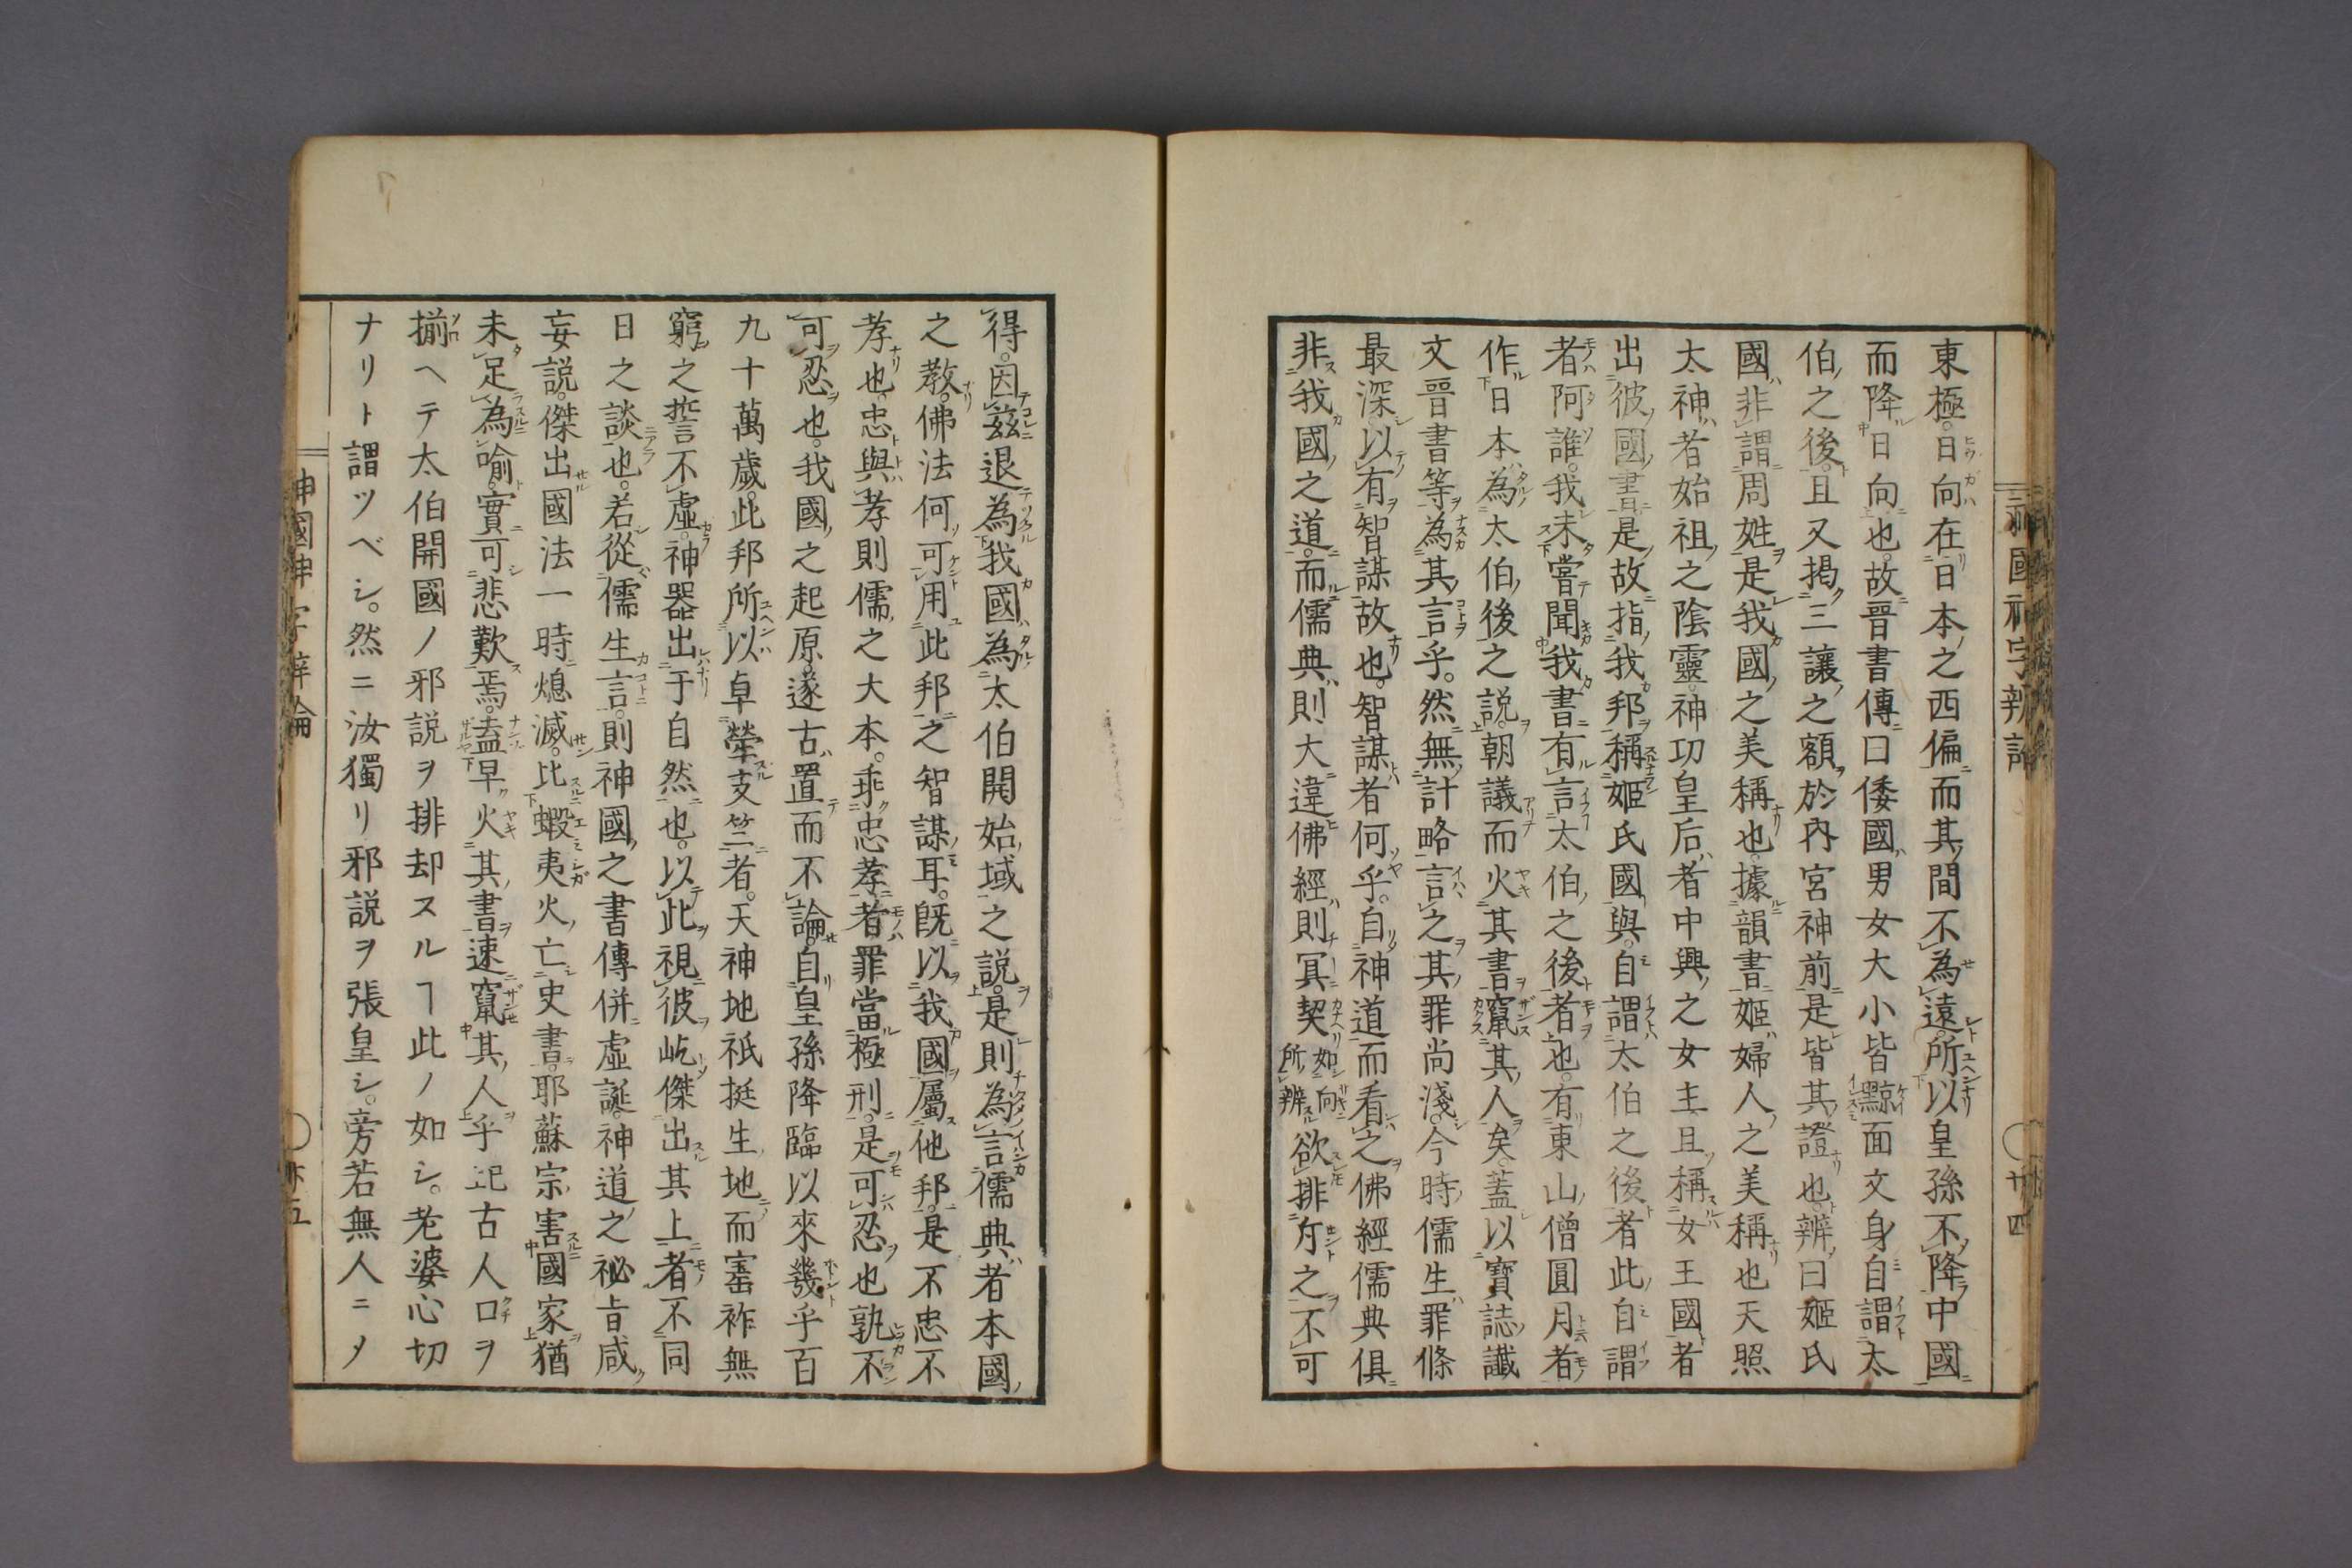 神國神字辨論 〇廿四
東極。日向在日本之西偏而其間不為遠。所以皇孫不降中國
而降日向也。故晉書傳曰倭國男女大小皆黥面文身自謂太
伯之後。且又掲三讓之額於內宮神前是皆其證也。辨曰姬氏
國非謂周姓。是我國之美稱也。據韻書姬婦人之美稱也天照
太神者始祖之陰靈。神功皇后者中興之女主。且稱女王國者
出彼國書。是故指我邦稱姬氏國與。自謂太伯之後者此自謂
者阿誰。我未嘗聞我書有言太伯之後者也。有東山僧圓月者
作日本為太伯後之說。朝議而火其書竄其人矣。蓋以寶誌讖
文晉書等為其言乎。然無計略言之其罪尚淺。今時儒生罪條
最深。以有智謀故也。智謀者何乎。自神道而看之佛經儒典俱
非我國之道。而儒典則大違佛經則冥契如向所辨欲排斥之不可
得。因茲退為我國為太伯開始域之說。是則為言儒典者本國
之教。佛法何可用此邦之智謀耳。既以我國屬他邦。是不忠不
孝也。忠與孝則儒之大本。乖忠孝者罪當極刑。是可忍也孰不
可忍也。我國之起原。邃古置而不論。自皇孫降臨以來幾乎百
九十萬歲。此邦所以卓犖支竺者。天神地祇挺生地而寶祚無
窮之誓不虛。神器出于自然也。以此視彼屹傑出其上者不同
日之談也。若從儒生言。則神國之書傳併虛誕。神道之祕旨咸
妄說。傑出國法一時熄滅。比蝦夷火亡史書。耶蘇宗害國家猶
未足為喻。實可悲歎焉。盍早火其書速竄其人乎記古人口ヲ
揃ヘテ太伯開國ノ邪說ヲ排却スルヿ此ノ如シ。老婆心切
ナリト謂ツベシ。然ニ汝獨リ邪說ヲ張皇シ。旁若無人ニメ
神國神字辨論 〇廿五